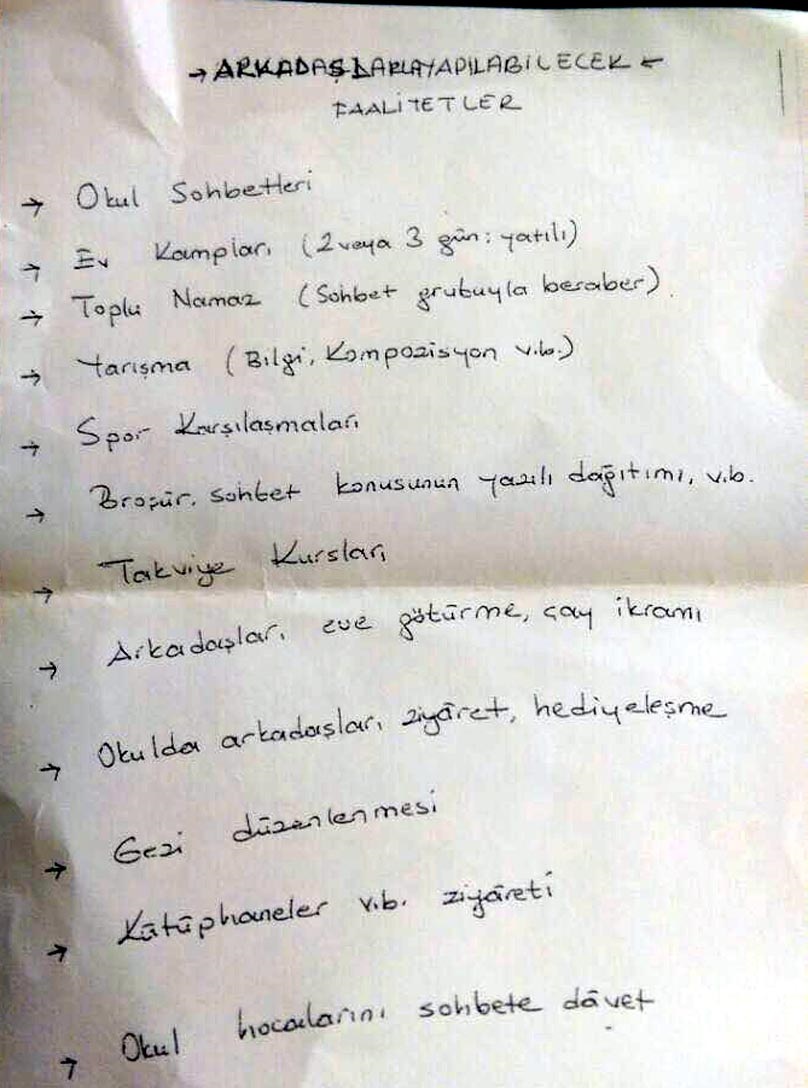 → ARKADAŞLARLA YAPILABİLECEK ←
FAALİYETLER
→ Okul Sohbetleri
→ Ev Kampları (2 veya 3 gün: yatılı)
→ Toplu Namaz (Sohbet grubuyla beraber).
→ Yarışma (Bilgi, Kompozisyon v.b.)
→ Spor Karşılaşmaları
→ Broşür, sohbet konusunun yazılı dağıtımı, v.b.
→ Takviye Kursları
→ Arkadaşları eve götürme, çay ikramı
→ Okulda arkadaşları ziyâret, hediyeleşme
→ Gezi düzenlenmesi
→ Kütüphaneler v.b. ziyâreti
→ Okul hocalarını sohbete dâvet